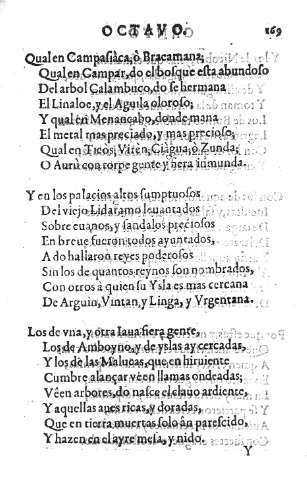 OCTAVO. 169
Qual en Campasiàca, ò Bracamana;
Qual en Campar, do el bosque esta abundoso
Del arbol Calambuco, do se hermana
El Linaloe, y el Aguila oloroso;
Y qual en Menancabo, donde mana
El metal mas preciado, y mas precioso;
Qual en Ticòs, Viren, Ciagua, ò Zunda;
O Aurù con torpe gente y fiera inmunda.
Y en los palacios altos sumptuosos
Del viejo Lidaramo leuantados
Sobre euanos, y sandalos preciosos
En breue fueron todos ayuntados,
A do hallaron reyes poderosos
Sin los de quantos reynos son nombrados,
Con otros à quien su Ysla es mas cercana
De Arguin, Vintan, y Linga, y Vrgentana.
Los de vna, y otra Iaua fiera gente,
Los de Amboyno, y de yslas ay cercadas,
Y los de las Malucas, que en hiruiente
Cumbre alançar véen llamas ondeadas;
Véen arbores, do nasce el clauo ardiente,
Y aquellas aues ricas, y doradas,
Que en tierra muertas solo àn parescido,
Y hazen en el ayre mesa, y nido.
Y